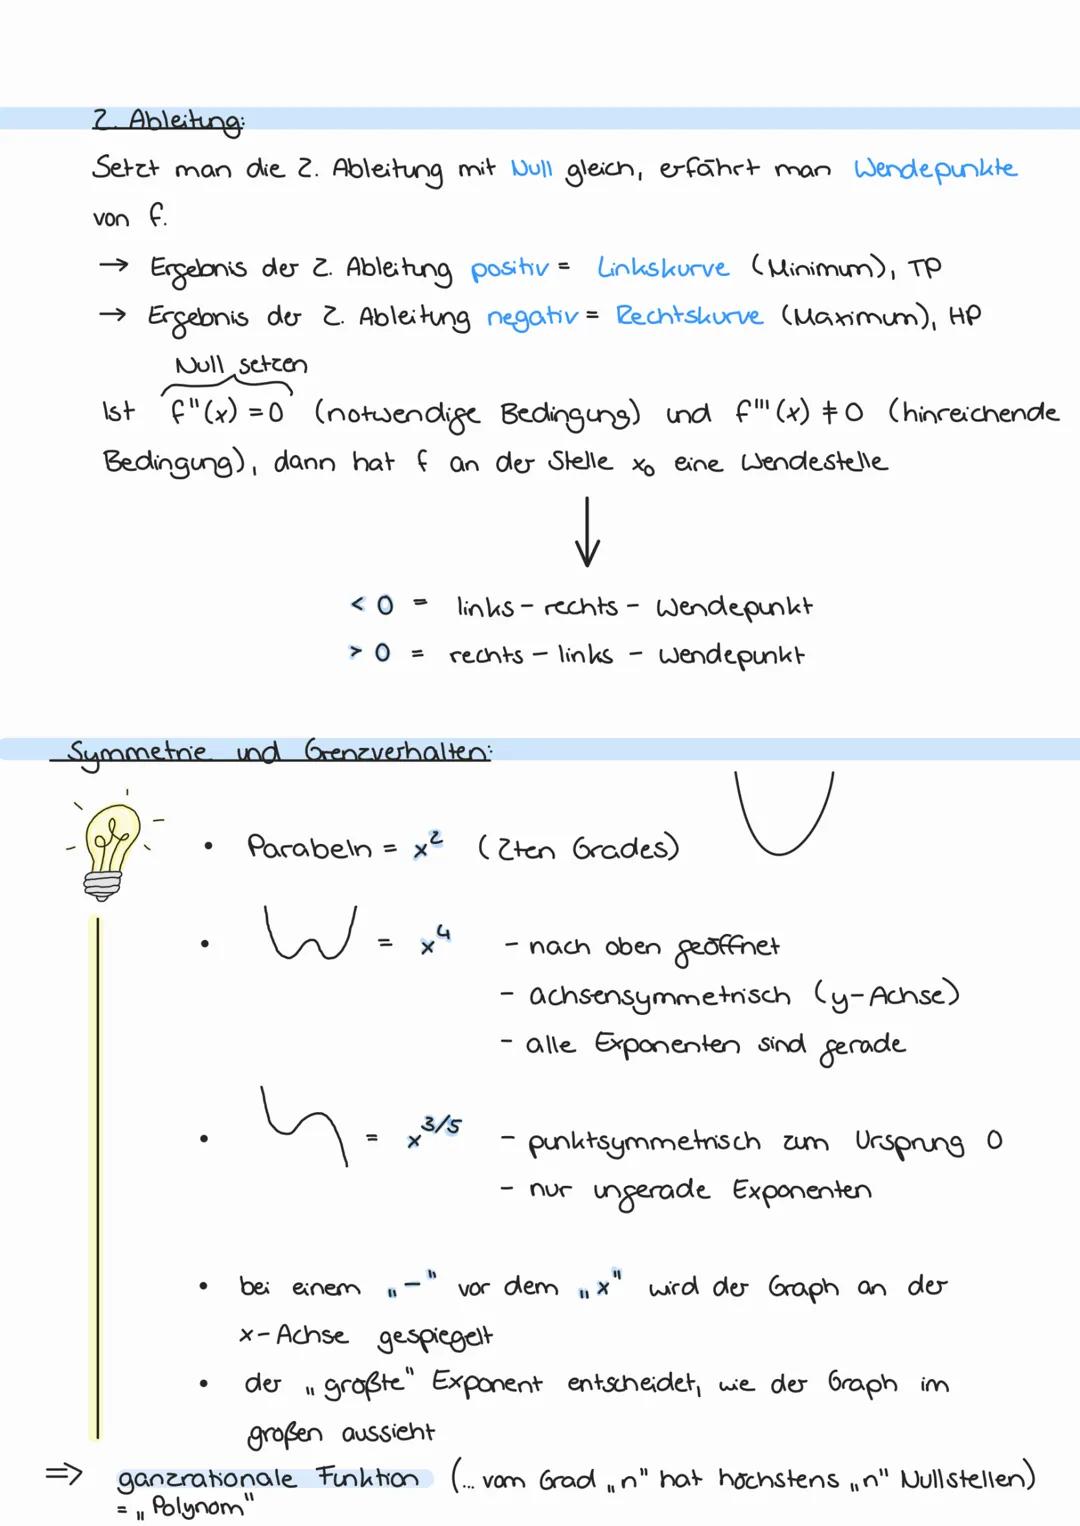 2. Ableitung:
Setzt man die 2. Ableitung mit Null gleich, erfährt man Wendepunkte
von f.
→ Ergebnis der 2. Ableitung positiv = Linkskurve (Minimum), TP
→ Ergebnis der 2. Ableitung negativ = Rechtskurve (Maximum), HP
Null setzen
Ist f"(x) = 0 (notwendige Bedingung) und f'''(x) ≠ 0 (hinreichende
Bedingung), dann hat f an der Stelle x₀ eine Wendestelle
< 0 = links - rechts - Wendepunkt
> 0 = rechts - links - Wendepunkt
Symmetrie und Grenzverhalten:
• Parabeln = x² (2ten Grades)
• = x⁴ - nach oben geöffnet
- achsensymmetrisch (y-Achse)
- alle Exponenten sind gerade
• = x^3/5 - punktsymmetrisch zum Ursprung 0
- nur ungerade Exponenten
• bei einem „-" vor dem „x" wird der Graph an der
x-Achse gespiegelt
• der „größte" Exponent entscheidet, wie der Graph im
großen aussieht
⇒ ganzrationale Funktion (... vom Grad „n" hat höchstens „n" Nullstellen)
= „Polynom"